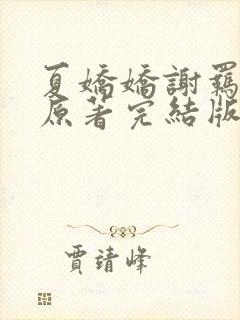 夏嬌嬌謝羈
原著完結版
賈靖峰